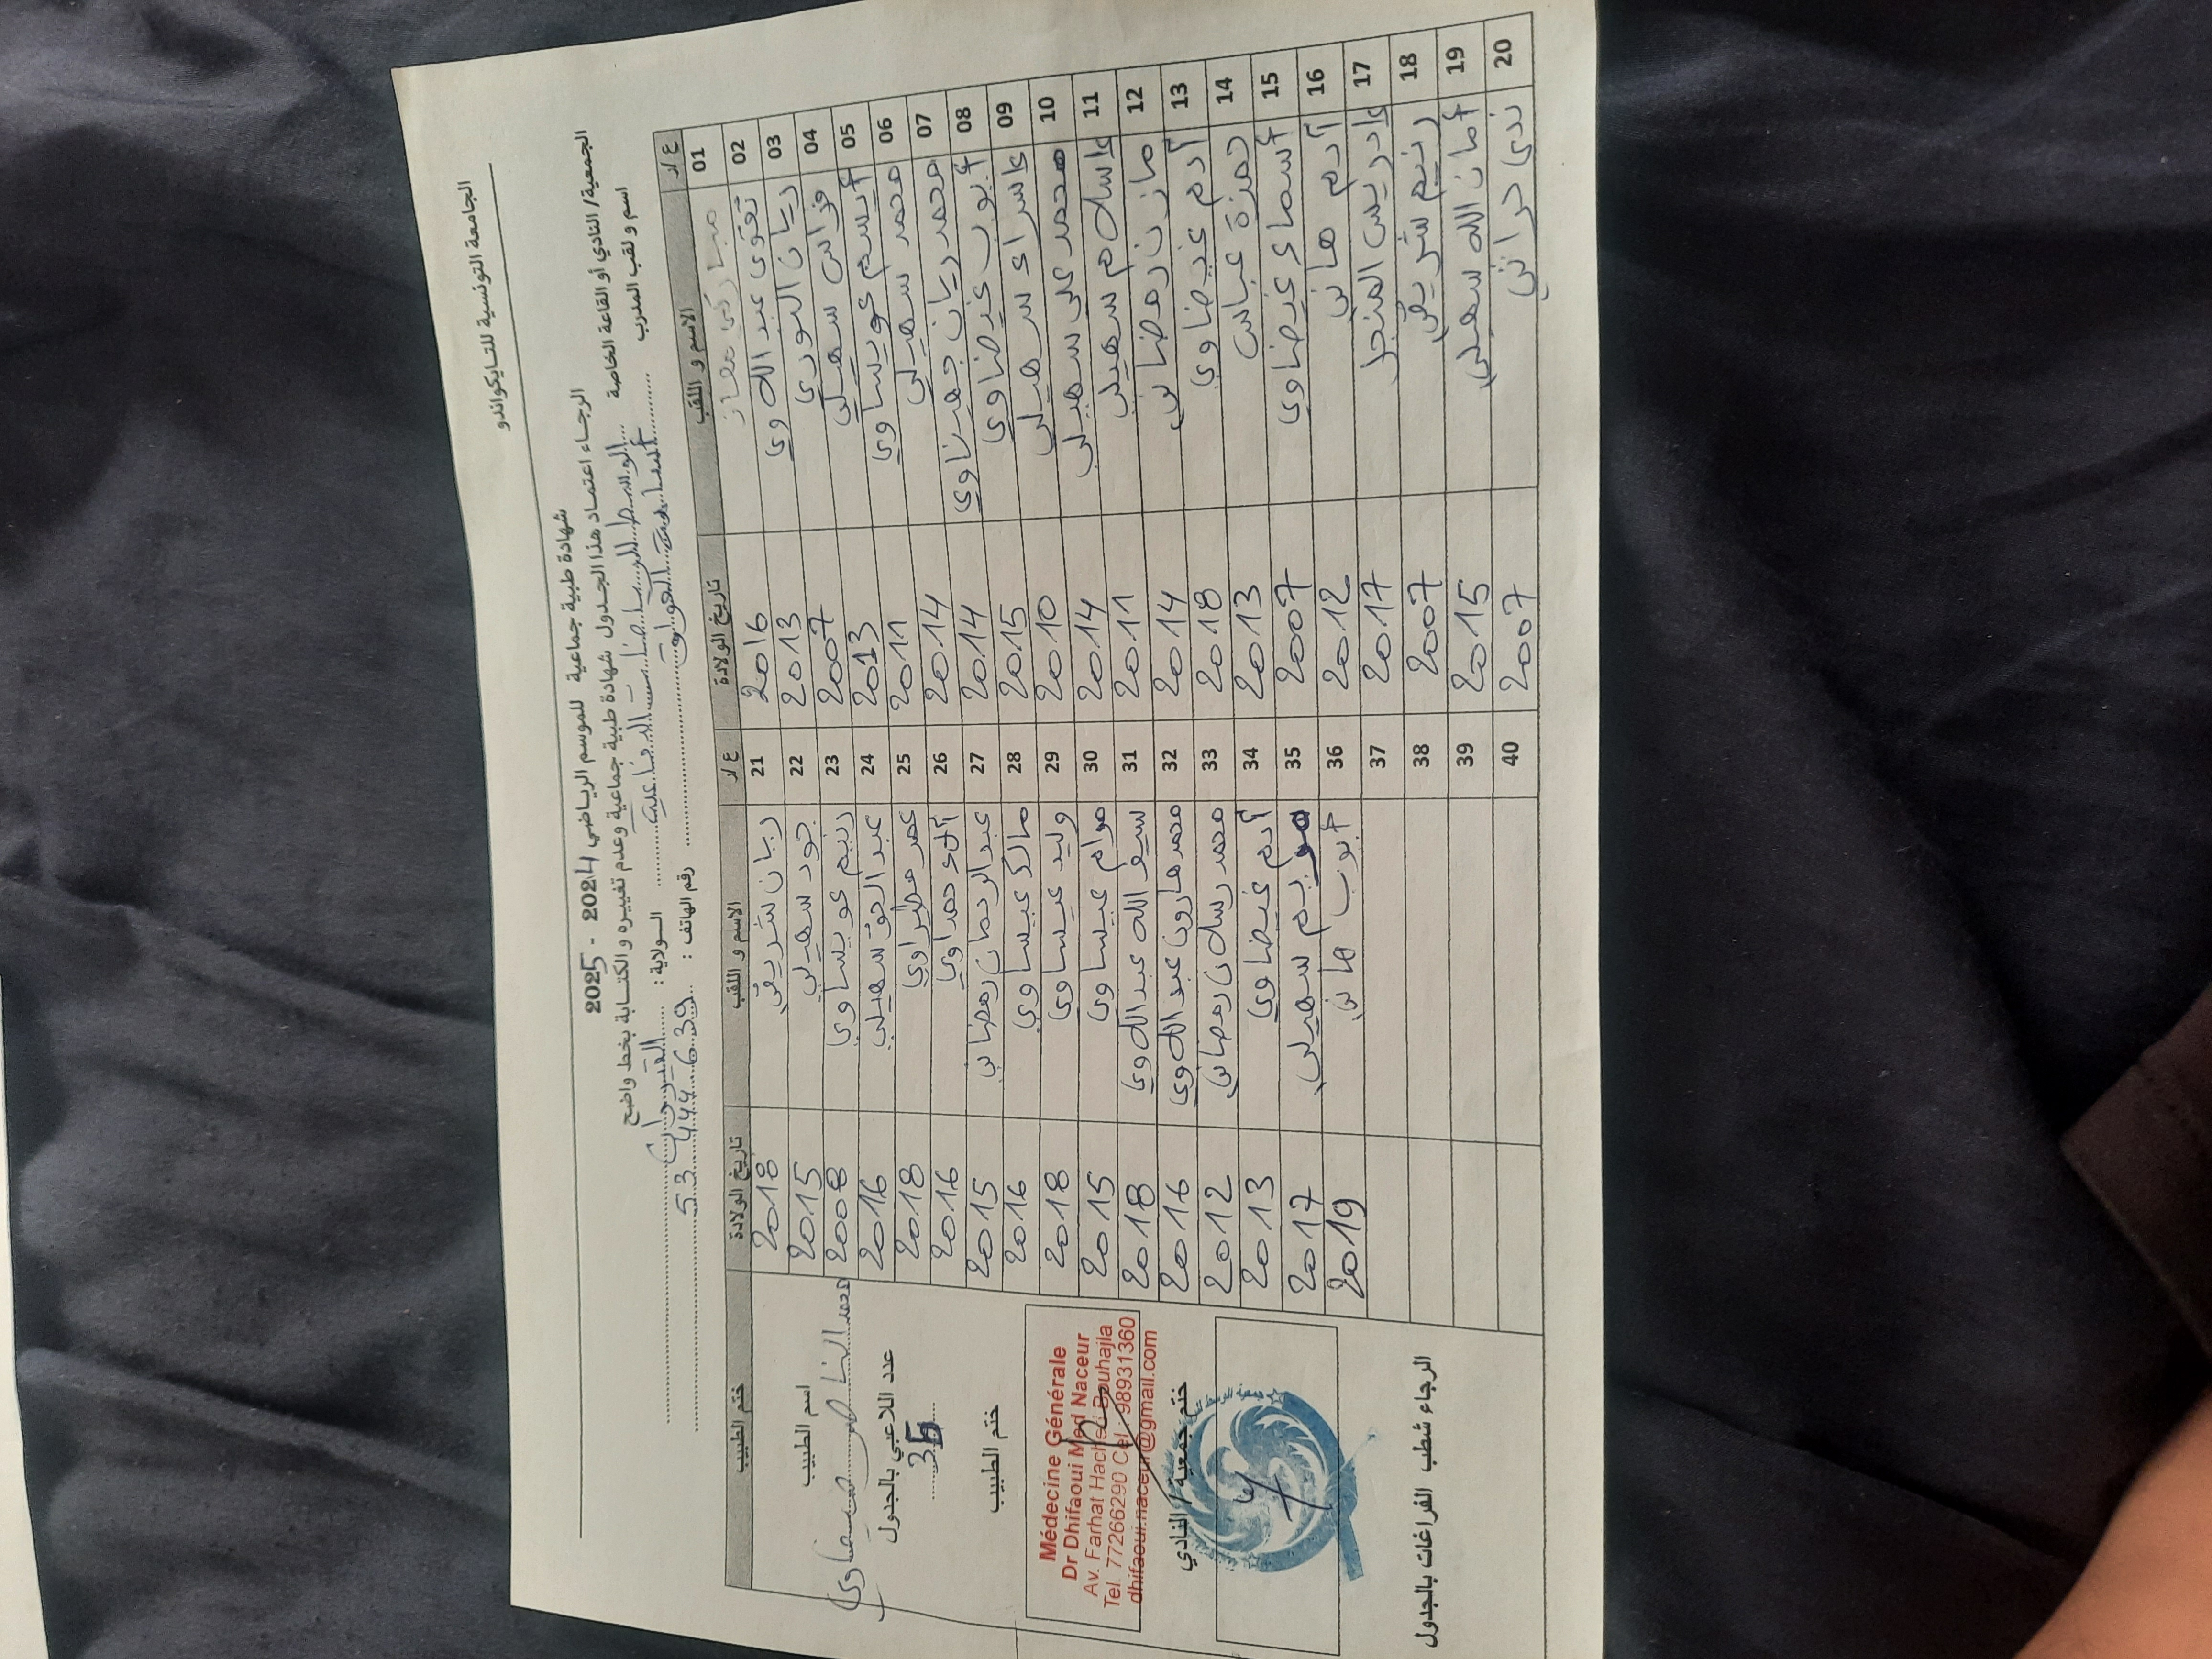 الجامعة التونسية للتايكواندو
شهادة طبية جماعية للموسم الرياضي 2024 - 2025
الرجاء اعتماد هذا الجدول شهادة طبية جماعية وعدم تغييره والكتابة بخط واضح
الجمعية/ النادي أو القاعة الخاصة الوسط للرياضات الدفاعية الولاية : القيروان
اسم و لقب المدرب أسامة رقم الهاتف : 53 444 639
ع/ر الاسم و اللقب تاريخ الولادة ع/ر الاسم و اللقب تاريخ الولادة ختم الطبيب
01 مباركي معاذ 2016 21 ريان شريفي 2018
02 تقوى عبداللاوي 2013 22 جود سهيلي 2015
03 ريان النوري 2007 23 رنيم عويساوي 2008
04 فراس سهيلي 2013 24 عبد الحق سهيلي 2016
05 أيسم عويساوي 2011 25 عمر مطيراوي 2018
06 محمد سهيلي 2014 26 آلاء حمداوي 2016
07 محمد ريان جهيناوي 2014 27 عبد الرحمان رمضاني 2015
08 أيوب غيضاوي 2015 28 مالك عيساوي 2016
09 إسراء سهيلي 2010 29 وليد عيساوي 2018
10 محمد علي سهيلي 2014 30 مرام عيساوي 2015
11 إسلام سهيلي 2011 31 سيف الله عبداللاوي 2018
12 مازن رمضاني 2014 32 محمد هارون عبداللاوي 2016
13 آدم غيضاوي 2018 33 محمد رسلان رمضاني 2012
14 حمزة عباس 2013 34 آدم غيضاوي 2013
15 أسماء غيضاوي 2007 35 مريم سهيلي 2017
16 آدم هاني 2012 36 أيوب هاني 2019
17 إدريس المنجل 2017 37
18 رنيم شريفي 2007 38
19 أمان الله سهيلي 2015 39
20 ندى حراثي 2007 40
اسم الطبيب
محمد الناصر ضيفاوي
عدد اللاعبي بالجدول
35
ختم الطبيب
Médecine Générale
Dr Dhifaoui Med Naceur
Av. Farhat Hached Bouhajla
Tel. 77266290 Cel. 98931360
dhifaoui.naceur@gmail.com
ختم جمعية / النادي
الرجاء شطب الفراغات بالجدول